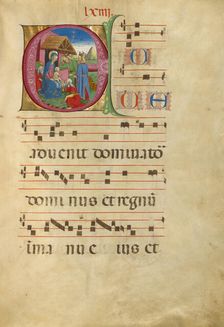 E C
C E
aduenit dominatoꝛ
domi nus et regnū
ī ma nu e ius et